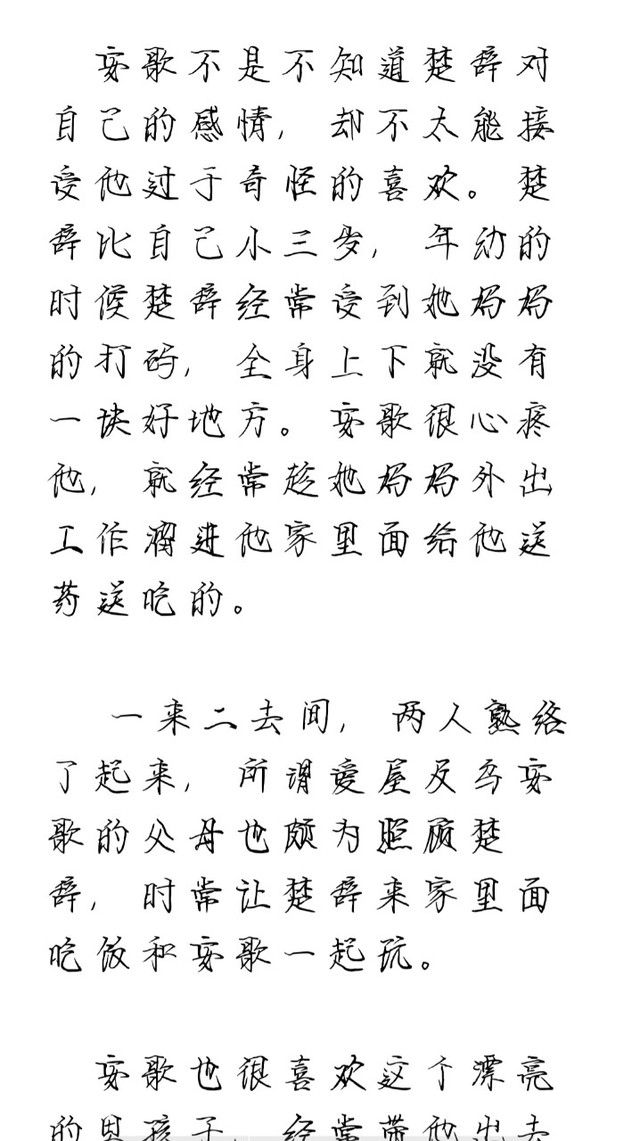 安歌不是不知道楚辞对
自己的感情，却不太能接
受他过于奇怪的喜欢。楚
辞比自己小三岁，年幼的
时候楚辞经常受到她妈妈
的打码，全身上下就没有
一块好地方。安歌很心疼
他，就经常趁她妈妈外出
工作溜进他家里面给他送
药送吃的。
一来二去间，两人熟络
了起来，所谓爱屋及乌安
歌的父母也颇为照顾楚
辞，时常让楚辞来家里面
吃饭和安歌一起玩。
安歌也很喜欢这个漂亮
的男孩子，经常带他出去